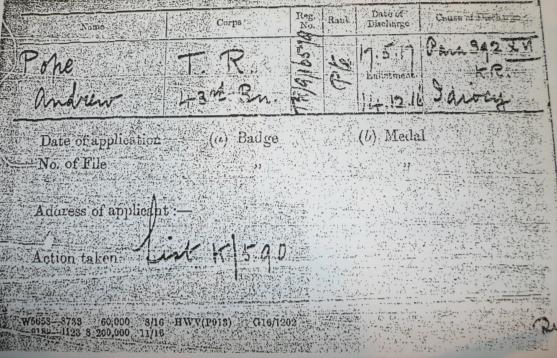 Name Corps Reg. No. Rank Date of Discharge Cause of Discharge
Pope T. R. Pte 17.5.17 Para 392 XVI
K.R.
Enlistment
Andrew 43rd Bn. 14.12.16 Idiocy
Date of application (a) Badge (b) Medal
No. of File " "
Address of applicant :—
Action taken List K/590
60,000 8/16 HWV(P913) G16/1202
1123 200,000 11/16